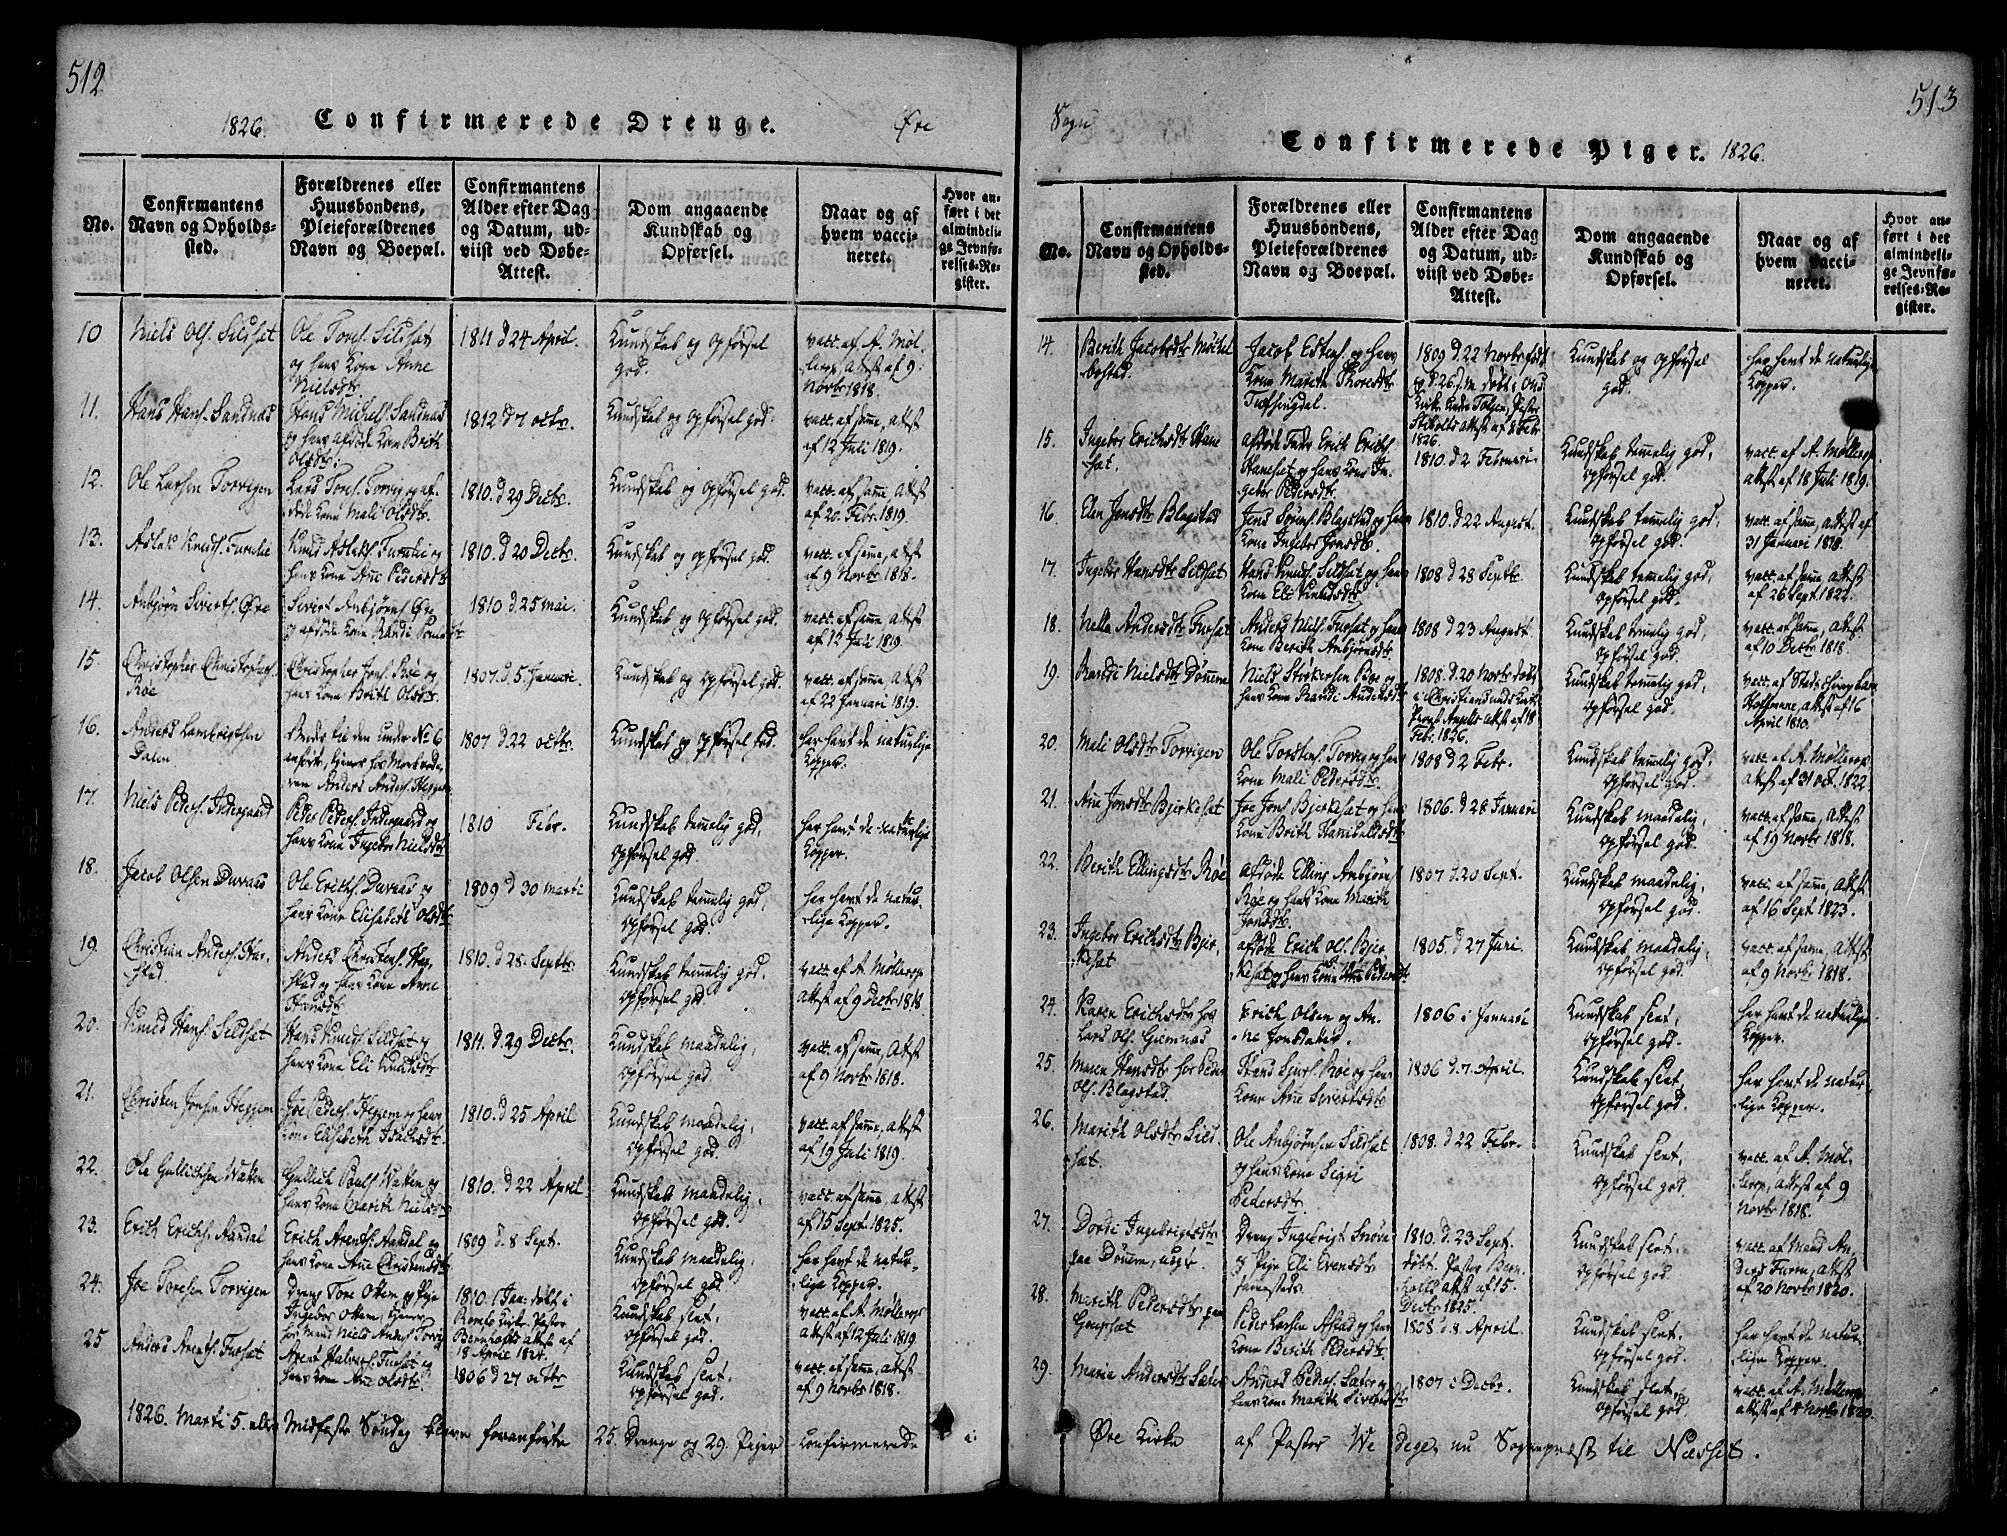 512
1826. Confirmerede Drenge. Øre
No.
Confirmantens
Navn og Opholds-
sted.
Forældrenes eller
Huusbondens,
Pleieforældrenes
Navn og Boepæl.
Confirmantens
Alder efter Dag
og Datum, ud-
viist ved Døbe-
Attest.
Dom angaaende
Kundskab og
Opførsel.
Naar og af
hvem vacci-
neret.
Hvor an-
ført i det
almindeli-
ge Jevnfø-
relses-Re-
gister.
10
Niels Ols. Sildsæt
Ole Tores. Sildsæt
og hans Kone Anne
Nielsdtr
1811 d 24 April.
Kundskab og Opførsel
god.
vacc. af A. Møl-
lerop, attest af 9
Novbr 1818.
11.
Hans Hans. Sandnæs
Hans Michels. Sandnæs
og hans afdøde Kone Brith
Olsdtr.
1812 d 7 octbr.
Kundskab og Opførsel god.
vacc. af samme, attest
af 12 Juli 1819.
12.
Ole Larsen Torvigen
Lars Tores. Torvig og af-
døde Kone Mali Olsdtr.
1810. d 29 Decbr.
Kundskab og Opførsel god.
vacc. af samme, attest
af 20. Febr. 1819.
13.
Aslak Knuds. Furulie
Knud Aslaks. Furulie og
hans Kone Ane Pedersdtr
1810. d 20 Decbr.
Kundskab og Opførsel god.
vacc. af samme, attest
af 9 Novbr 1818.
14.
Anbjørn Siverts. Øre
Sivert Anbjørns. Øre
og afdøde Kone Randi
1810 d. 25 mai.
Kundskab og Opførsel god.
vacc. af samme, attest
af 12 Juli 1819.
15.
Christopher Christophers.
Røe
Christopher Jons. Røe og
hans Kone Brith Olsdtr.
1807. d. 5. Januari.
Kundskab og Opførsel god.
vacc. af samme, attest
af 22 Januari 1819.
16.
Anders Lambrigtsen
Dalen
1807 d. 22 octbr.
Kundskab og Opførsel god.
har havt de naturlige
Kopper.
17.
Niels Peders. Indregaard
Peder Peders. Indregaard og
hans Kone Ingebor Nielsdtr
1810 Febr.
Kundskab temmelig god,
Opførsel god.
har havt de naturlige
Kopper.
18.
Jacob Olsen Duvaas
Ole Erichs. Duvaas og
hans Kone Elisabeth Olsdtr
1809 d 30 marti
Kundskab temmelig god,
Opførsel god.
har havt de natur-
lige Kopper.
19.
Christian Anders. Har-
stad.
Anders Christens. Har-
stad og hans Kone Ane
Hansdtr
1810. d. 28. Septbr.
Kundskab temmelig god,
Opførsel god.
vacc. af A. Møllerop
attest af 9 Decbr 1818
20.
Knud Hans. Sildsæt
Hans Knuds. Sildsæt og
hans Kone Eli Knudsdtr
1811. d. 29 Decbr.
Kundskab maadelig,
Opførsel god.
vacc. af samme, attest
af 9 Novbr 1818.
21.
Christen Joesen Heggem
Joe Peders. Heggem og hans
Kone Elisabeth Isachsdtr.
1810. d 25 April
Kundskab maadelig,
Opførsel god.
vacc. af samme, attest
af 19 Juli 1819.
22.
Ole Gullichsen Watten
Gullich Pouls. Watten og
hans Kone Marith Nielsdtr
1810. d 22 April
Kundskab maadelig,
Opførsel god.
vacc. af samme, attest
af 15 Sept. 1825.
23.
Erich Erichs. Aandal
Erich Arents. Aandal og
hans Kone Ane Christensdtr
1809 d. 8 Sept.
Kundskab maadelig,
Opførsel god.
har havt de natur-
lige Kopper.
24.
Joe Toresen Torvigen
Dreng Tore Ottem og Pige
Ingebor Ottem, tjener
hos Mand Niels Anders. Torvig
1810. 1 Jan: døbt i
Kirke, Pastor
Bernholts attest af
18 April 1824.
Kundskab slet,
Opførsel god.
vacc. af A. Møllerop
attest af 12 Juli 1819
25
Anders Arents. Fursæt
Arent Halvors. Fursæt og
hans Kone Ane Olsdtr.
1806 d 27 octbr
Kundskab slet,
Opførsel god.
vacc. af samme, attest
af 9 Novbr 1818.
1826. Marti 5. eller Midfaste Søndag bleve foranførte 25. Drenge og 29. Piger confirmerede
513
Sogn
Confirmerede Piger. 1826.
No.
Confirmantens
Navn og Opholds-
sted.
Forældrenes eller
Huusbondens,
Pleieforældrenes
Navn og Boepæl.
Confirmantens
Alder efter Dag
og Datum, ud-
viist ved Døbe-
Attest.
Dom angaaende
Kundskab og
Opførsel.
Naar og af
hvem vacci-
neret.
Hvor an-
ført i det
almindeli-
ge Jevnfø-
relses-Re-
gister.
14.
Berith Jacobsdtr
Jacob Estens. og hans
Kone Marith Thoresdtr
1809 d. 22 Novbr født
og d. 26. s.m. døbt i
Pastor
attest af 8 Febr
1826.
Kundskab og Opførsel
god.
har havt de naturlige
Kopper.
15.
Ingebor Erichsdtr Hane-
sæt.
afdøde Erich Erichs.
Hanesæt og hans Kone In-
gebor Pedersdtr
1810. d. 2 Februari.
Kundskab temmelig god,
Opførsel god.
vacc. af A. Møllerop
attest af 18 Juli 1819.
16.
Elen Jensdtr Blagstad
Jens Sørens. Blagstad og hans
Kone Ingebor Jonsdtr.
1810. d. 22 August.
Kundskab temmelig god,
Opførsel god.
vacc. af samme, attest af
31 Januari 1818.
17.
Ingebor Hansdtr Sildsæt
Hans Knuds. Sildsæt og hans
Kone Eli Knudsdtr
1808 d 28 Septbr.
Kundskab temmelig god,
Opførsel god.
vacc. af samme, attest
af 26 Sept. 1822.
18.
Nella Andersdtr Fursæt
Anders Niels. Fursæt og hans
Kone Berith Anbjørnsdtr.
1808 d 23 August.
Kundskab temmelig god,
Opførsel god.
vacc. af samme, attest
af 10 Decbr 1818.
19.
Randi Nielsdtr Dømmem
Niels Bøe og
hans Kone Randi Andersdtr
1808. d. 20 Novbr døbt
i Christiansunds Kirke
Provst Angells attest af 18
Febr. 1826.
Kundskab temmelig god,
Opførsel god.
vacc. af
attest af 16
April 1810.
20.
Mali Olsdtr Torvigen
Ole Torstens. Torvig og hans
Kone Mali Pedersdtr.
1808 d 2 Febr.
Kundskab temmelig god,
Opførsel god.
vacc. af A. Møllerop
attest af 31 oct. 1822
21.
Ane Jonsdtr Bjerkesæt
Joe Jons. Bjerkesæt og hans
Kone Brith Hanibalsdtr
1806. d 28 Januari
Kundskab maadelig,
Opførsel god.
vacc. af samme, attest
af 19 Novbr 1818.
22.
Berith Ellingsdtr Røe
afdøde Elling Anbjørns.
Røe og hans Kone Marith
Jonsdtr.
1807 d. 20 Sept.
Kundskab maadelig,
Opførsel god.
vacc. af samme, attest
af 16 Sept. 1823.
23.
Ingebor Erichsdtr Bjer-
kesæt
afdøde Erich Ols. Bjer-
kesæt og hans Kone Ane Pedersdtr
1805. d 27 Juni
Kundskab maadelig,
Opførsel god.
vacc. af samme, attest
af 9 Novbr 1818.
24.
Karen Erichsdtr hos
Lars Ols. Gjemnæs
Erich Olsen og An-
ne Jonsdatter.
1806 i Januari
Kundskab slet,
Opførsel god.
har havt de naturlige
Kopper.
25.
Maren Hansdtr hos Peder
Ols. Blagstad.
Hans Sjurs. Røe og hans
Kone Ane Sivertsdtr
1806 d. 7. April.
Kundskab slet,
Opførsel god.
har havt de natur-
lige Kopper.
26.
Marith Olsdtr Sild-
sæt.
Ole Anbjørnsen Sildsæt
og hans Kone Sigri
Pedersdtr.
1808. d 22 Febr.
Kundskab slet,
Opførsel god.
vacc. af A. Møl-
lerop, attest af 9
Novbr 1818.
27.
Dordi Ingebrigtsdtr
paa Dømmem, uægte.
Dreng Ingebrigt
og Pige Eli Evensdtr
sammesteds.
1810. d. 23 Sept.
døbt. Pastor Bern-
holts attest af 15.
Decbr 1825.
Kundskab slet,
Opførsel god.
vacc. af Mand An-
ders Furu, attest
af 20 Novbr 1820.
28.
Marith Pedersdtr paa
Goupsæt
Peder Larsen og hans
Kone Berith Pedersdtr.
1808 d. 8. April.
Kundskab slet,
Opførsel god.
har havt de natur-
lige Kopper.
29.
Marie Andersdtr Sæter
Anders Peders. Sæter og
hans Kone Marith Sivertsdtr
1807 i Decbr.
Kundskab slet,
Opførsel god.
vacc. af A. Møllerop
attest af 4 Novbr 1820.
Øre Kirke af Pastor Wedege, nu Sognepræst til Næsset.